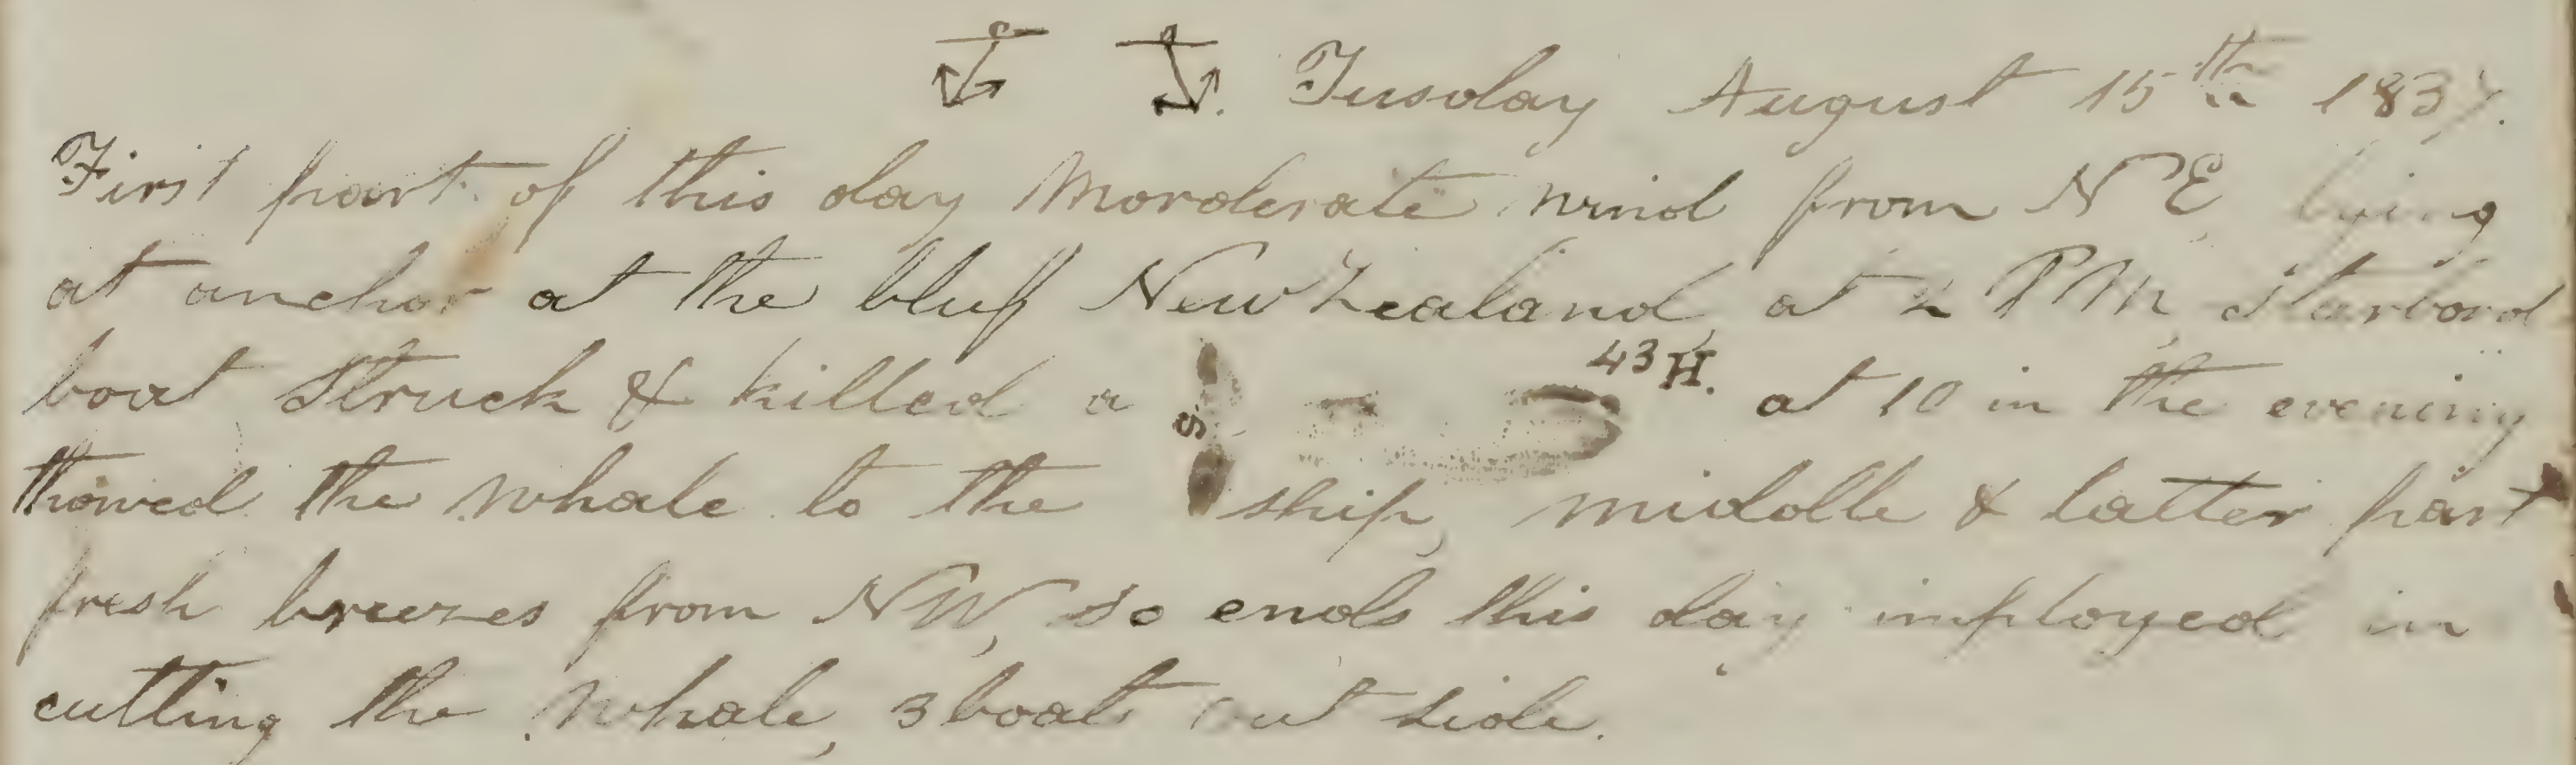 Tusday August 15th 1837.
First part of this day Morderate wind from N E lying
at anchor at the bluff New Zealand, at 2 PM, Starbord
boat Struck & killed a S 43 H. at 10 in the evening
thowed the whale to the ship, middle & latter part
fresh breezes from NW, so ends this day imployed in
cutting the whale, 3 boat out side.